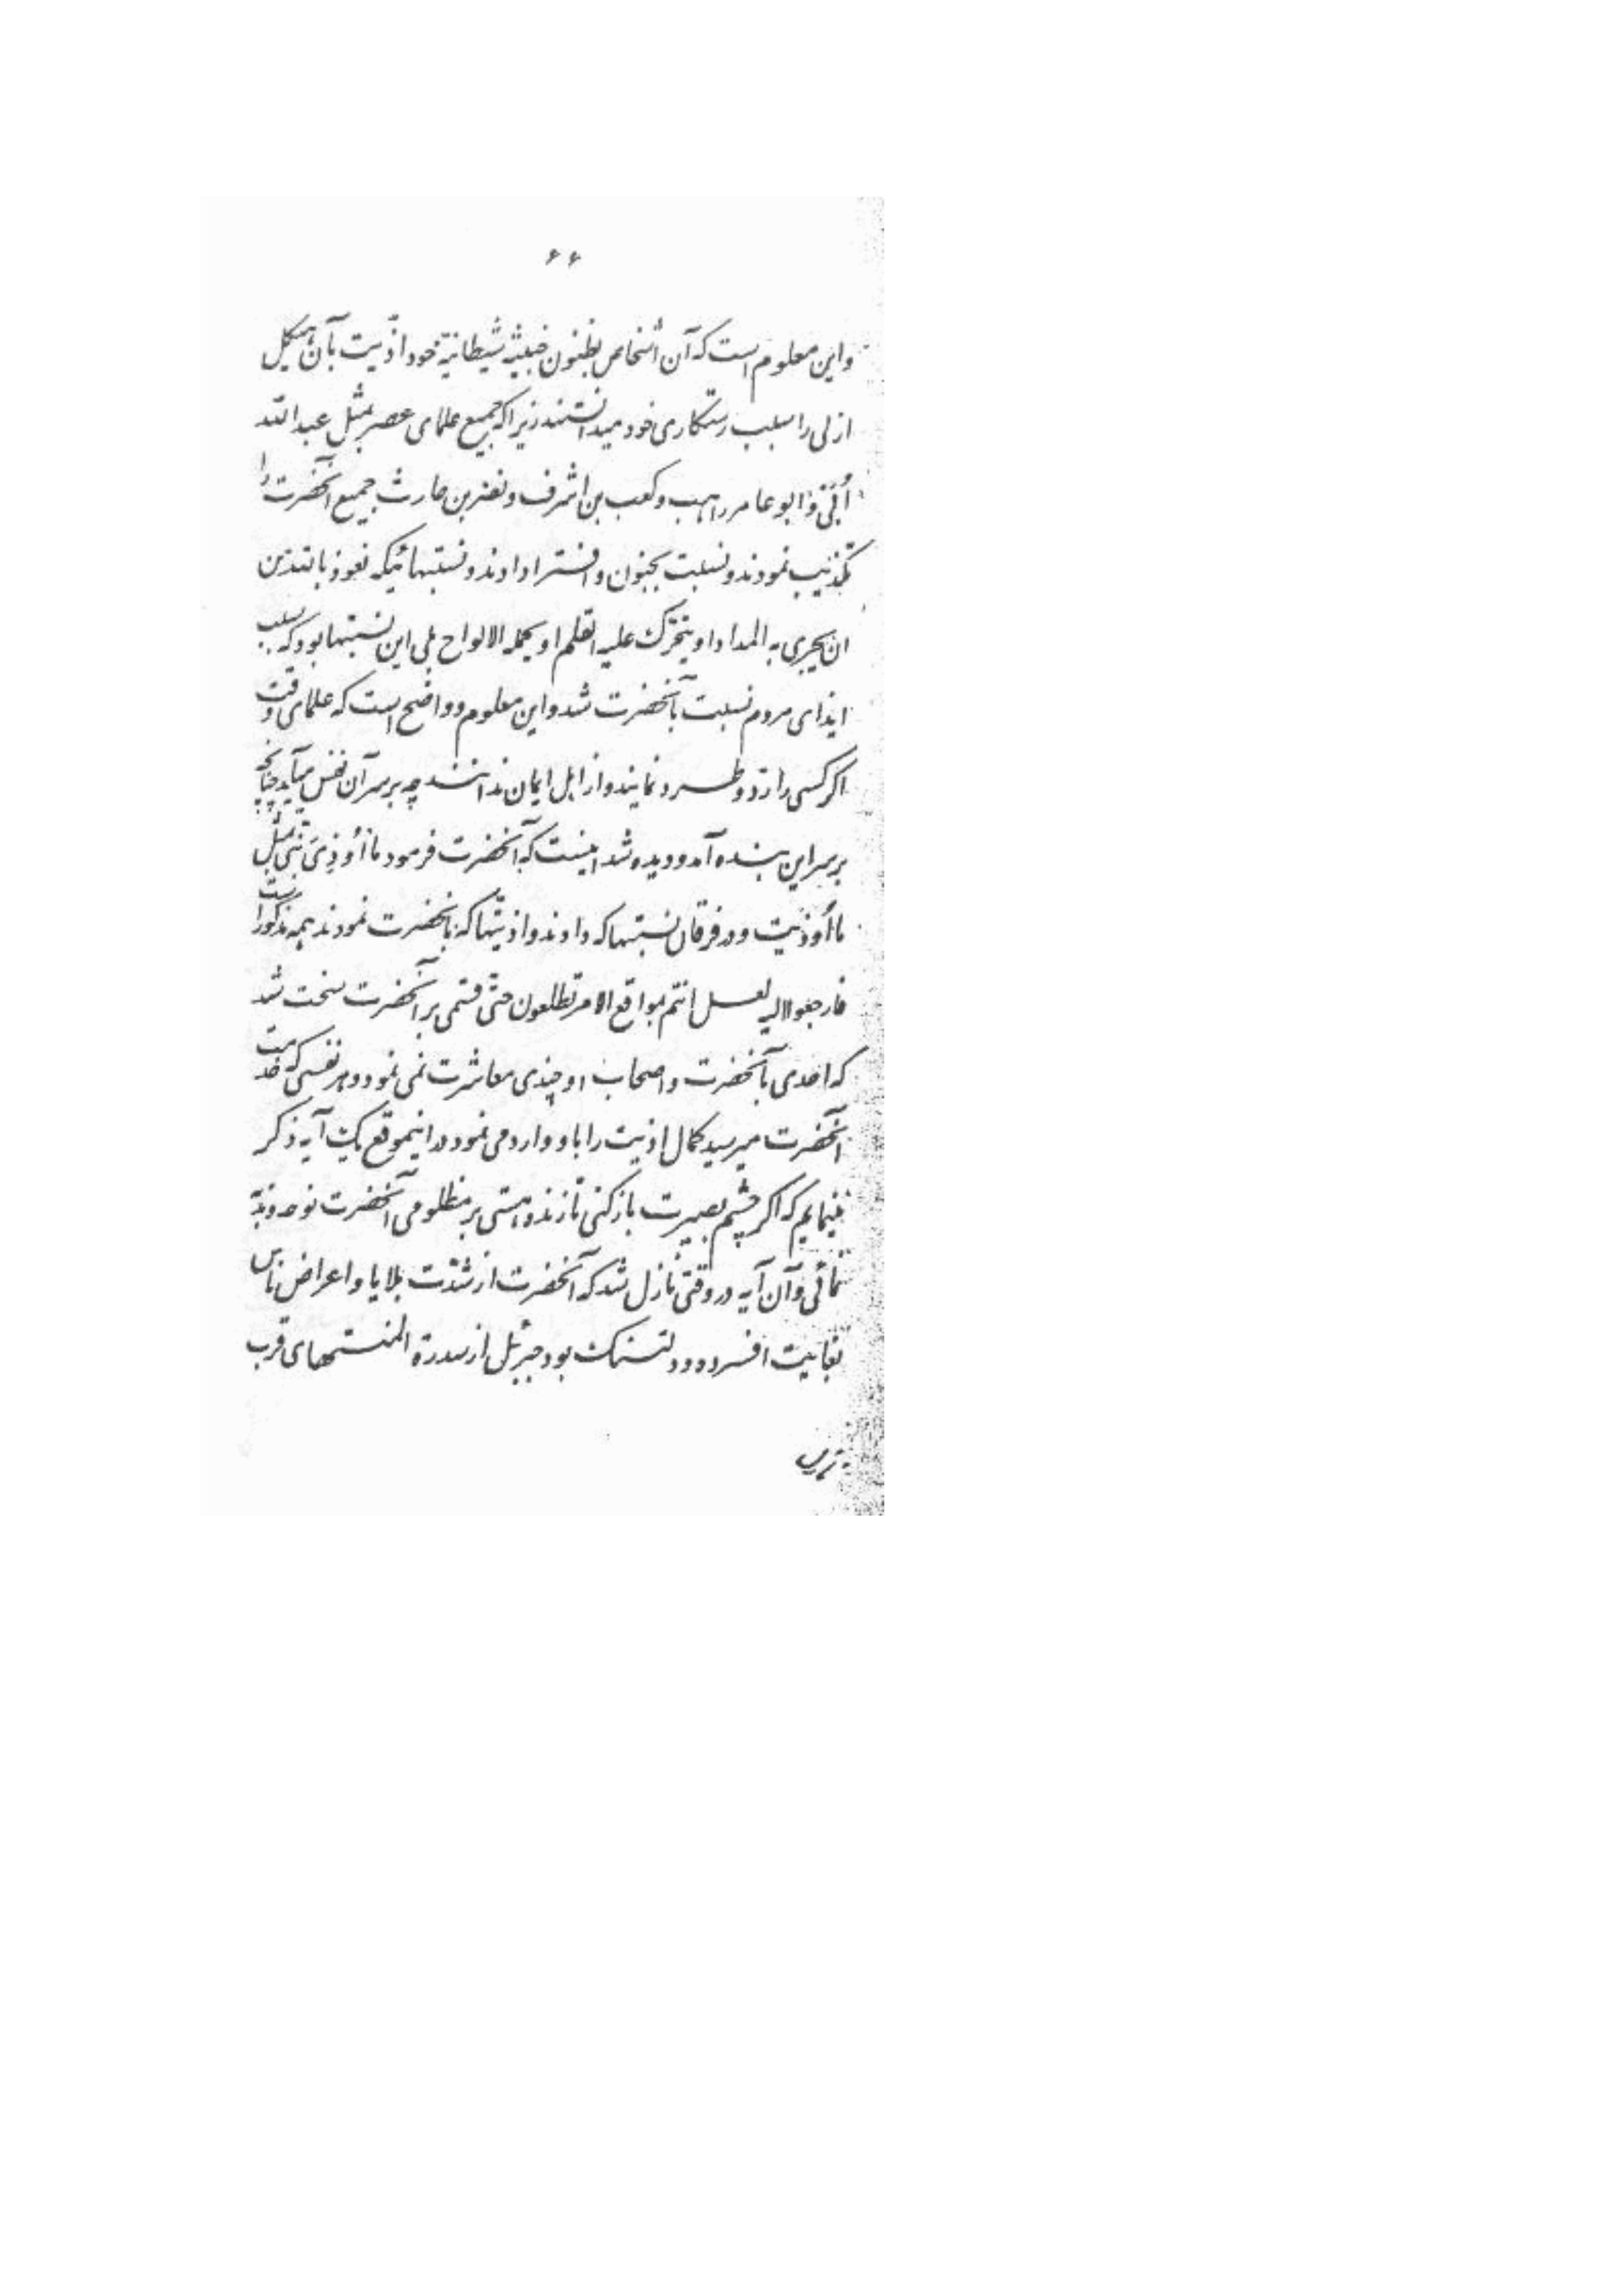 ۶۶
و این معلوم است که آن اشخاص بظنون خبیثه شیطانیّه خود اذّیت بآن هیکل
ازلی را سبب رستگاری خود میدانستند زیرا که جمیع علمای عصر بمثل عبدالله
اُبَیّ و ابو عامر راهب و کعب بن اشرف و نضر بن حارث جمیع آنحضرت را
تکذیب نمودند و نسبت بجنون و افترا دادند و نسبتهائیکه نعوذ بالله من
ان یجری به المداد او یتحرّک علیه القلم او یحمله الالواح بلی این نسبتها بود که سبب
ایذای مردم نسبت بآنحضرت شد و این معلوم و واضح است که علمای وقت
اگر کسی را ردّ و طرد نمایند و از اهل ایمان ندانند چه بر سر آن نفس میآید چنانچه
بر سر این بنده آمد و دیده شد اینست که آنحضرت فرمود ما اُوذِیَ نَبّی بمثل
ما اُوذیت و در فرقان نسبتها که دادند و اذیّتها که بآنحضرت نمودند همه مذکور است
فارجعوا الیه لعل انتم بمواقع الامر تطلعون حتّی قسمی بر آنحضرت سخت شد
که احدی با آنحضرت و اصحاب او چندی معاشرت نمی نمود و هر نفسی که خدمت
آنحضرت میرسید کمال اذیت را باو وارد می نمود در اینموقع یک آیه ذکر
مینمایم که اگر چشم بصیرت باز کنی تا زنده هستی بر مظلومی آنحضرت نوحه و ندبه
نمائی و آن آیه در وقتی نازل شد که آنحضرت از شدّت بلایا و اعراض ناس
بغایت افسرده و دلتنگ بود جبرئیل از سدرة المنتهای قرب